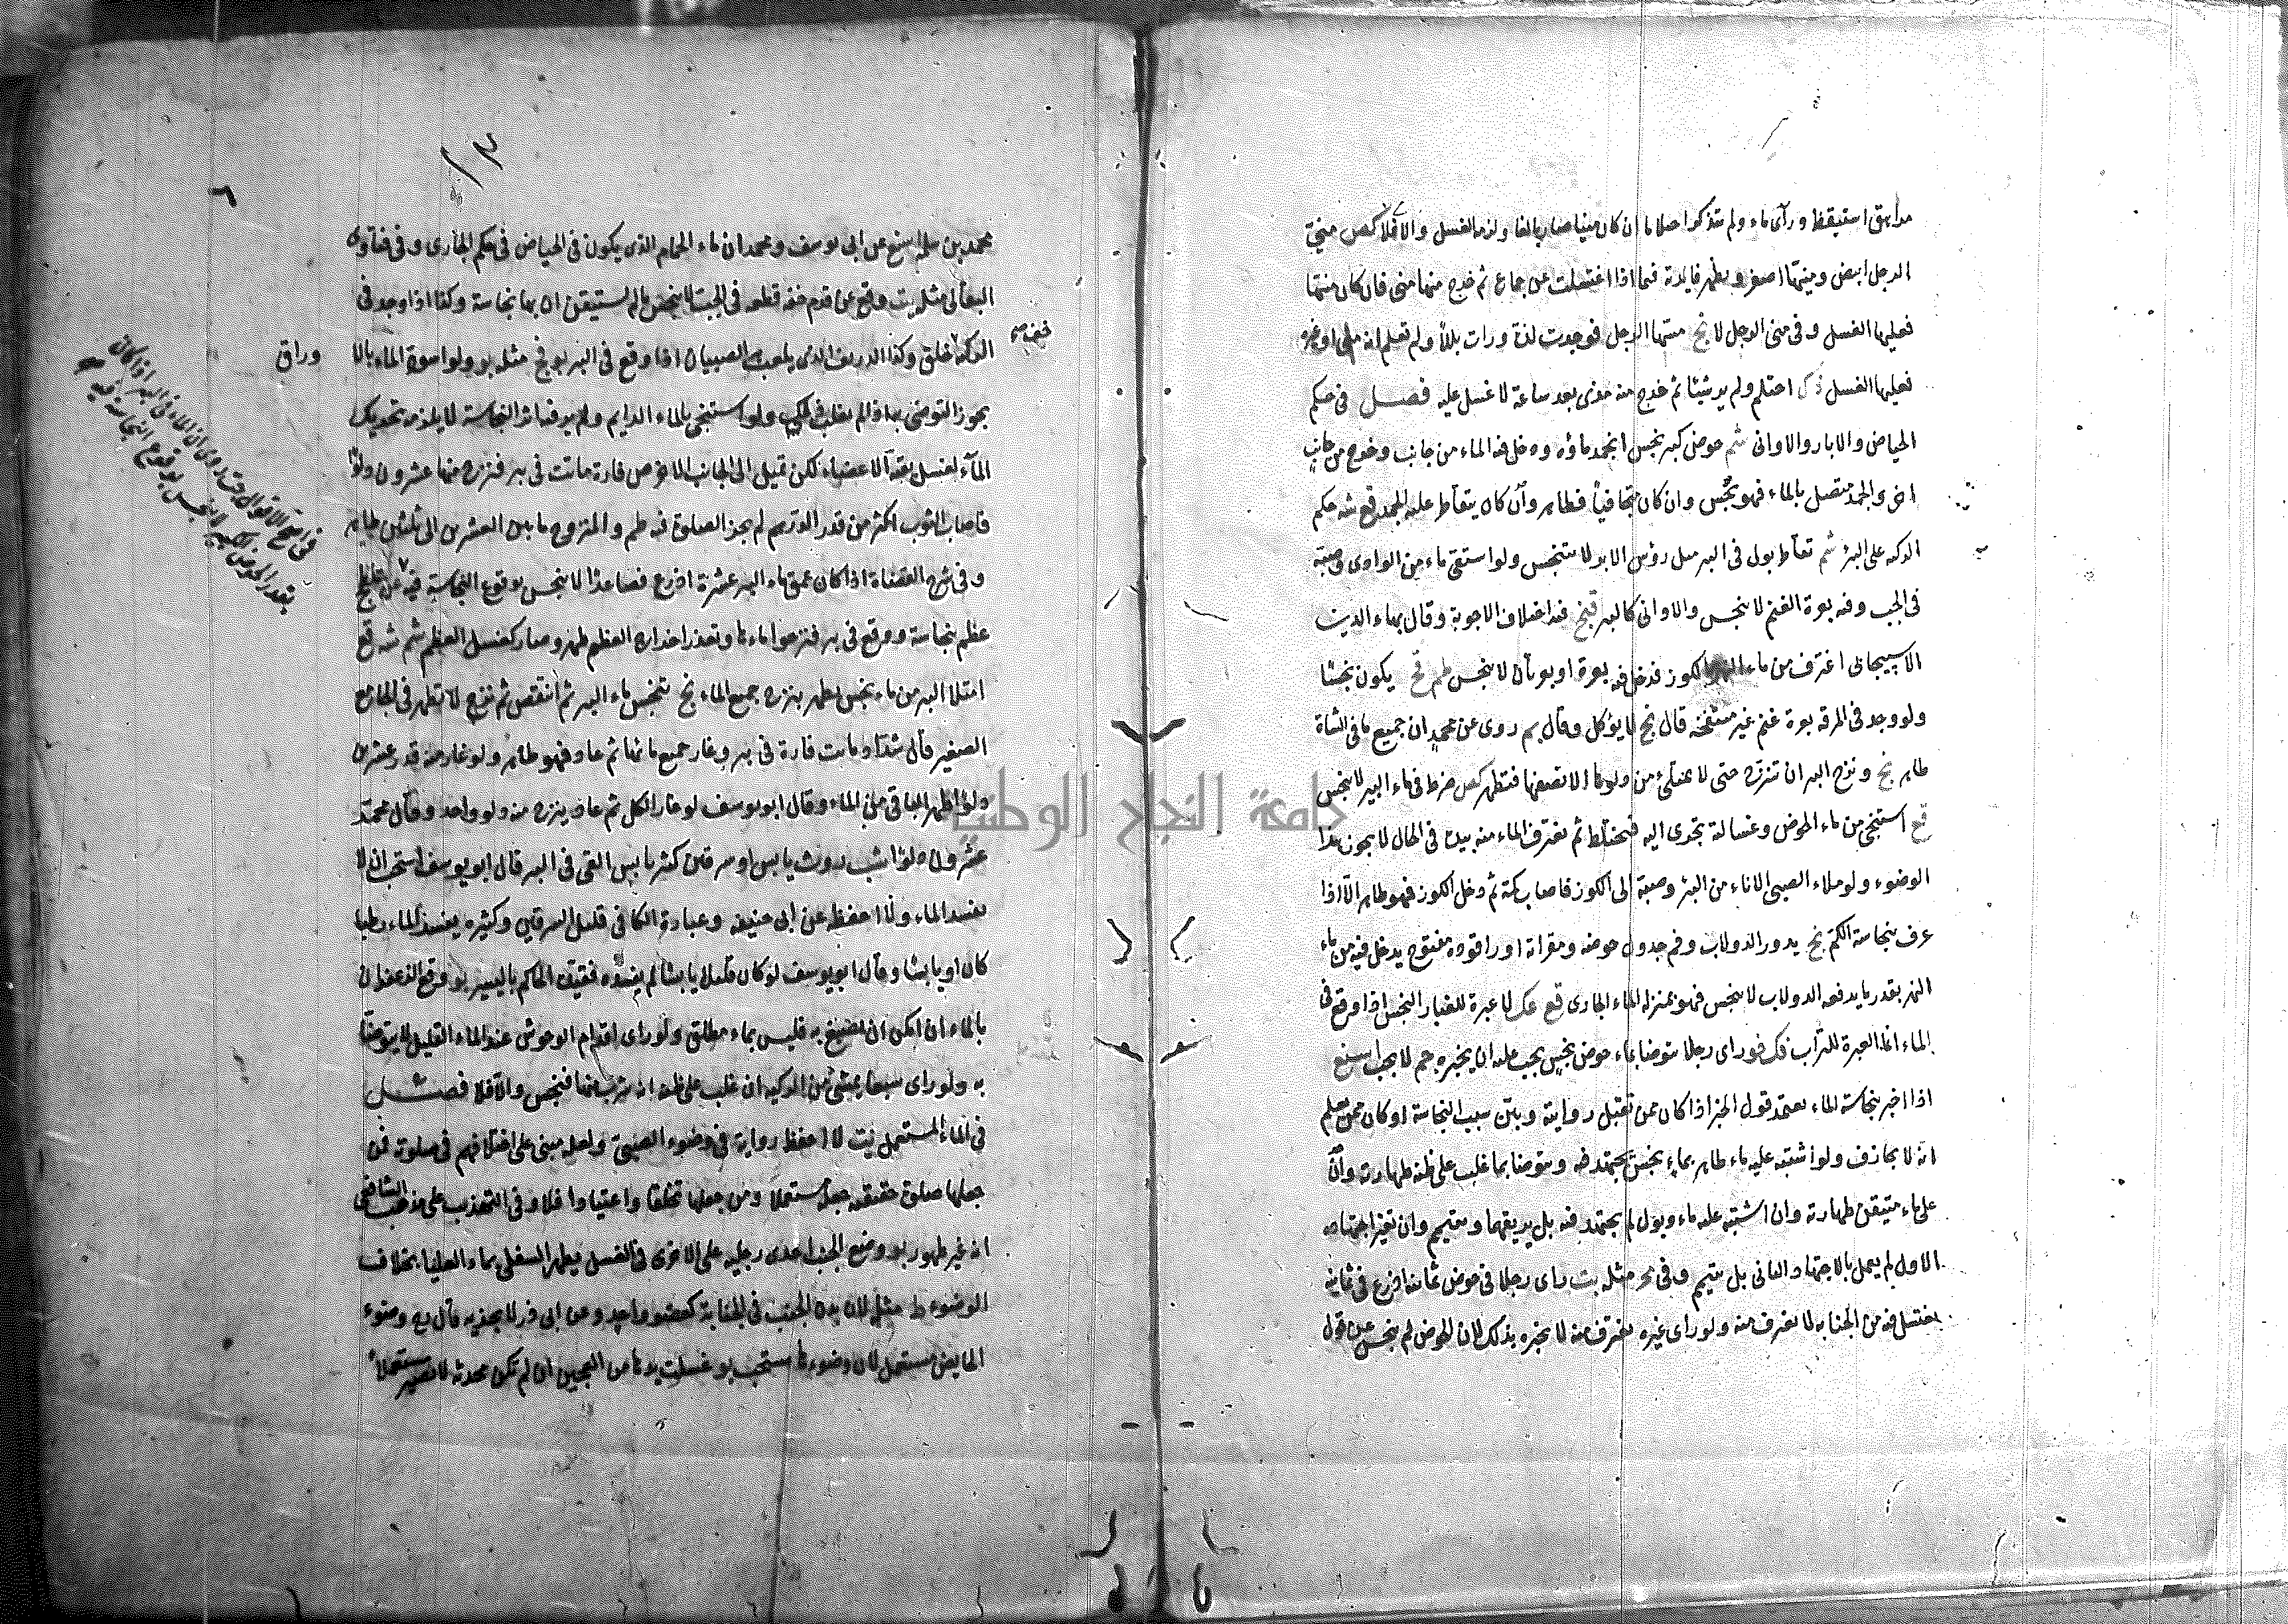 مراهق استيقظ ورآى ماء ولم يتذكر احتلاما ان كان منيا صار بالغا ولزمه الغسل والا فلا كص منيّ
الرجل ابيض ومنيّها اصفر ويظهر فايدته فيما اذا اغتسلت عن جماع ثم خرج منها منى فان كان منيّها
فعليها الغسل وفى منى الرجل لا نج مسّها الرجل فوجدت لذة ورات بللاً ولم تعلم انه منى او غيره
فعليها الغسل احتلم ولم ير شيئا ثم خرج منه مذى بعد ساعة لا غسل عليه فصل فى حكم
الحياض والابار والاوانى شم حوض كبير نجس انجمد ماؤه ودخل فيه الماء من جانب وخرج من جانب
اخر والجمد متصل بالماء فهو نجس وان كان متجافيا فطاهر وان كان يتقاطر عليه الجمد قع شه حكم
الركية على البئر شم تقاطر بول فى البير مثل رؤس الابر لا يتنجس ولو استقى ماء من الوادى وصبّه
فى الجب وفيه بعرة الغنم لا ينجس والاوانى كالبير قيخ فيه اختلاف الاجوبة وقال بهاء الدين
الاسبيجابى اغترف من ماء النهر بالكوز فدخل فيه بعرة او بعرتان لا ينجس ظم قخ يكون نجسا
ولو وجد فى المرقة بعرة غنم غير متفتتة قال نج لا يؤكل وقال بم روى عن محمد ان جميع ما فى الشاة
طاهر نج ونزح البير ان تنزح حتى لا يمتلئ من دلوها الا نصفها فتطهر كص ضرط فى ماء البير لا ينجس
قع استنجى من ماء الحوض وغسالته تجرى اليه فتختلط ثم يغترف الماء منه بيده فى الحال لا يجوز بهذا
الوضوء ولو ملاء الصبى الاناء من البئر وصبّه الى الكوز فاصاب كمه ثم دخل الكوز فهو طاهر الّا اذا
عرف نجاسة الكم نج يدور الدولاب وفم جدول حوضه ومقراته او راقوده مفتوح يدخل فيه من ماء
النهر بقدر ما يدفعه الدولاب لا ينجس فهو بمنزلة الماء الجارى قع عك لا عبرة للغبار النجس اذا وقع فى
الماء انما العبرة للتراب فك خو راى رجلا يتوضا بماء حوض نجس يجب عليه ان يخبره حم لا يجب اسنع
اذا اخبر بنجاسة الماء يعتمد قول المخبر اذا كان ممن تقبل روايته وبيّن سبب النجاسة او كان ممن يعلم
انه لا يجازف ولو اشتبه عليه ماء طاهر بماء نجس يجتهد فيه ويتوضا بما غلب على ظنه طهارته وان
على ماء متيقن طهارته وان اشتبه عليه ماء وبول لم يجتهد فيه بل يريقهما ويتيمم وان تغير اجتهاده
الاول لم يعمل بالاجتهاد الثانى بل يتيمم وفى محر مثله بت راى رجلا فى حوض ثمانية اذرع فى ثمانية
يغتسل فيه من الجنابة لا يغترف منه ولو راى غيره يغترف منه لا يخبره بذلك لان الحوض لم ينجس عن قول
١٣
٦
محمد بن سلمة اسنع عن ابى يوسف ومحمد ان ماء الحمام الذى يكون فى الحياض فى حكم الجارى وفى فتاوى
البقالى مثله بت وقع عن قدم خفه قطعة فى الجب لا ينجس ما لم يستيقن ان بها نجاسة وكذا اذا وجد فى
خفه صم
الركية خلق وكذا الدريف الذى يلعب به الصبيان اذا وقع فى البير بو فخ مثله بو ولو اسودّ الماء بالا
وراق
يجوز التوضى به اذا لم يغلب ولو استنجى بالماء الدايم ولم ير فيه اثر النجاسة لا يلزمه تحريك
الماء لغسل بقية الاعضاء لكن تميل الى الجانب الاخر ص فارة ماتت فى بير فنزح منها عشرون دلوا
فاصاب الثوب اكثر من قدر الدرهم لم يجز الصلوة فيه ظم والمنزوح ما بين العشرين الى ثلثين طاهر
وفى شرح القضاة اذا كان عمق ماء البير عشرة اذرع فصاعدًا لا ينجس بوقوع النجاسة فيه
عظم بنجاسة ووقع فى بير فنزحوا ماءها وتعذر اخراج العظم طهر وصار كغسل العظم شم شه قع
امتلا البير من ماء نجس يطهر بنزح جميع الماء نج تنجس ماء البير ثم انتقص ثم نزح لا تطهر فى الجامع
الصغير قال شداد ماتت فارة فى بير وغار جميع مائها ثم عاد فهو طاهر ولو غار منه قدر عشرين
دلوا طهر الباقى من الماء وقال ابو يوسف لو غار الكل ثم عاد ينزح منه دلو واحد وقال محمد
عشرون دلوًا شب روث يابس او سرقين كثر يابس القى فى البير قال ابو يوسف استحب ان لا
يفسد الماء ولا احفظ عن ابى حنيفة وعبارة الكافى قليل السرقين وكثيره يفسد الماء رطبا
كان او يابسا وقال ابو يوسف لو كان قليلا يابسا لم يفسده فقيّد الحاكم باليسير بو وقع الزعفران
بالماء ان امكن ان يصبغ به فليس بماء مطلق ولو راى اقدام الوحوش عند الماء القليل لا يتوضّا
به ولو راى سبعا يمشى من الركية ان غلب على ظنه انه شرب منها فنجس والا فلا فصل
فى الماء المستعمل نيت لا احفظ رواية فى وضوء الصبى ولعله مبنى على اختلافهم فى صلوته فمن
جعلها صلوة حقيقة جعله مستعملا ومن جعلها تخلقا واعتيادا فلا وفى التهذيب على مذهب الشافعى
انه غير طهور بو وضع الجنب احدى رجليه على الاخرى فى الغسل يطهر السفلى بماء العليا بخلاف
الوضوء ط مثله لان بدن الجنب فى الجنابة كعضو واحد وعن ابى ذر لا يجزيه قال بم وضوء
الحايض مستعمل لان وضوءها مستحب بو غسلت يدها من العجين ان لم تكن محدثة لا يصير مستعملا
جامعة النجاح الوطنية